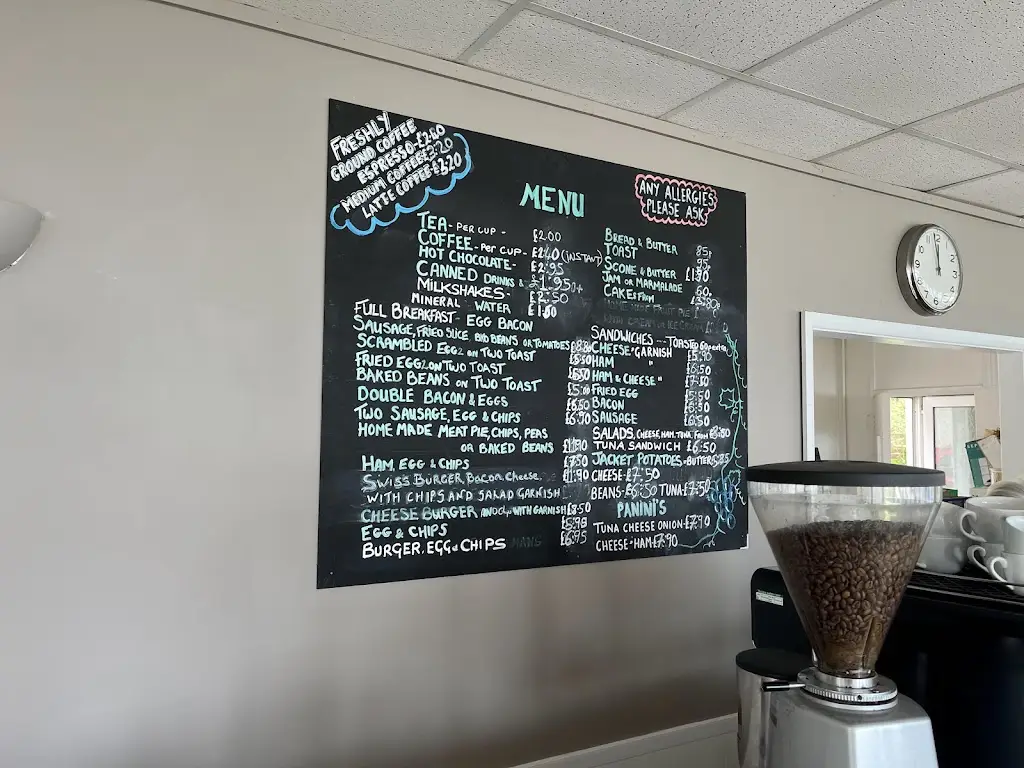 FRESHLY
GROUND COFFEE
ESPRESSO-£2.50
MEDIUM COFFEE £3.20
LATTE COFFEE £3.20
MENU
ANY ALLERGIES
PLEASE ASK
TEA- PER CUP - £2.00
COFFEE - PER CUP - £2.40 (INSTANT)
HOT CHOCOLATE- £2.95
CANNED DRINKS £1.95
MILKSHAKES- £2.50
MINERAL WATER £1.80
FULL BREAKFAST- EGG BACON
SAUSAGE, FRIED SLICE BKD BEANS OR TOMATOES
SCRAMBLED EGGZ ON TWO TOAST
FRIED EGGZ ON TWO TOAST £6.50
BAKED BEANS ON TWO TOAST
DOUBLE BACON & EGGS £6.50
TWO SAUSAGE, EGG & CHIPS
HOME MADE MEAT PIE, CHIPS, PEAS
OR BAKED BEANS £11.90
HAM, EGG & CHIPS £7.50
SWISS BURGER, BACON, CHEESE, £11.90
WITH CHIPS AND SALAD GARNISH
CHEESE BURGER WITH GARNISH £8.50
EGG & CHIPS
BURGER, EGG & CHIPS £6.95
BREAD & BUTTER 85p
TOAST 95
SCONE & BUTTER £1.90
JAM OR MARMALADE 60
CAKES FROM
SANDWICHES --- TOASTED
CHEESE + GARNISH £5.90
HAM " £6.50
HAM & CHEESE " £7.50
FRIED EGG £5.50
BACON
SAUSAGE £6.50
SALADS, CHEESE, HAM, TUNA, FROM
TUNA SANDWICH £6.50
JACKET POTATOES + BUTTER
CHEESE-£7.50
BEANS-£6.50 TUNA-£7.50
PANINI'S
TUNA CHEESE ONION-£7.90
CHEESE+HAM £7.90